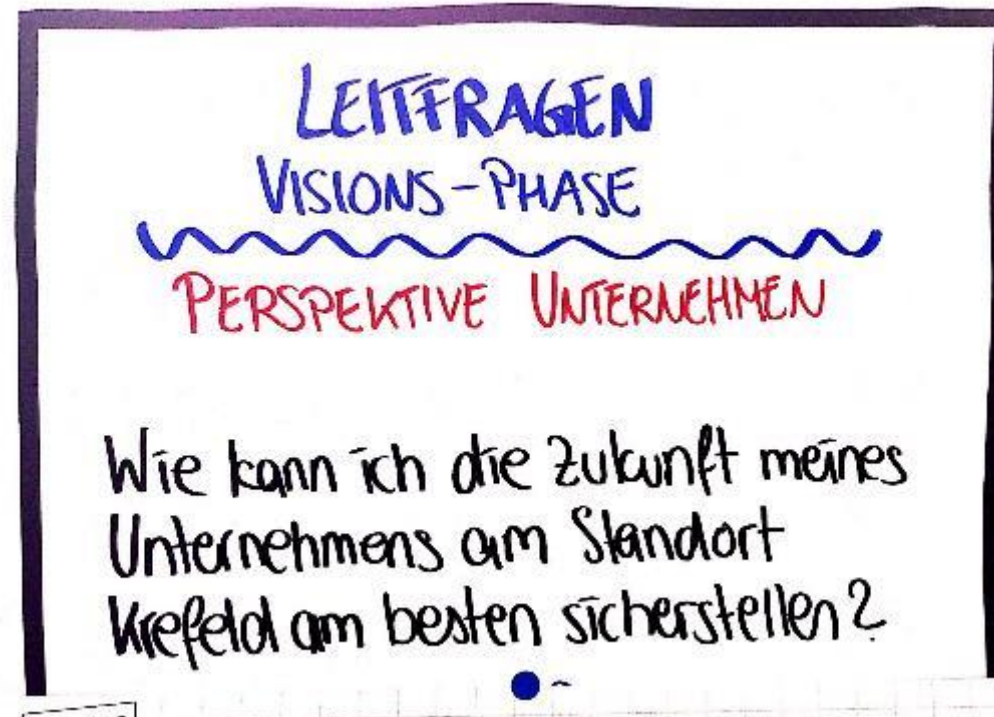 LEITFRAGEN
VISIONS-PHASE
PERSPEKTIVE UNTERNEHMEN
Wie kann ich die Zukunft meines
Unternehmens am Standort
Krefeld am besten sicherstellen?